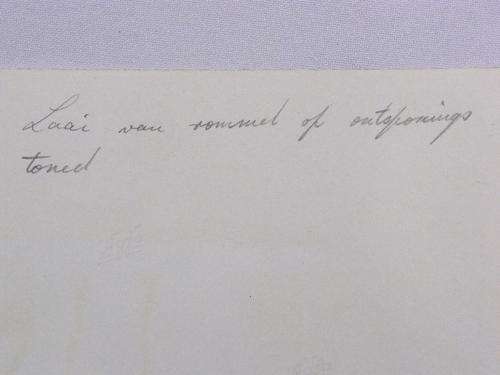 Laai van rommel op ontspanings
toneel